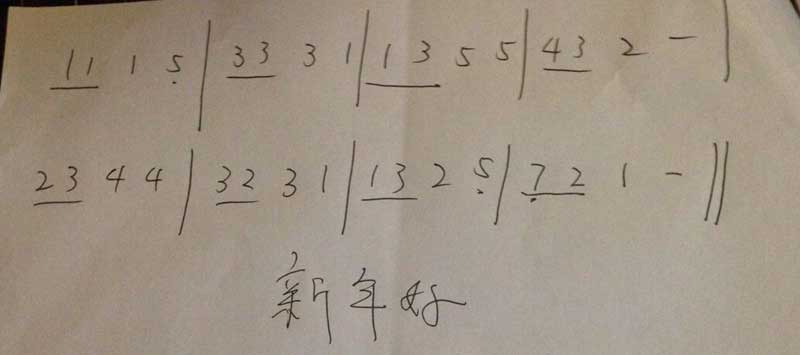 11 1 5 | 33 3 1 | 13 5 5 | 43 2 - |
23 4 4 | 32 3 1 | 13 2 5 | 72 1 - ||
新年好